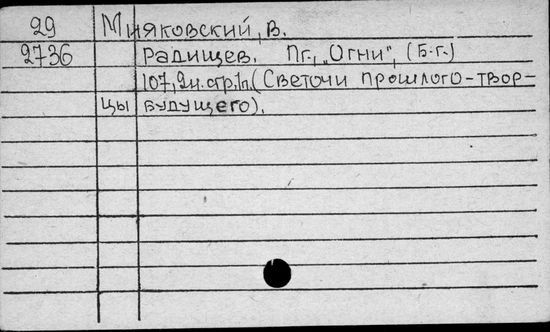 29 Мияковский, В.
2736 Радищев. Пг., "Огни", (б.г.)
107, 2н. стр. 1п. (Светочи прошлого-твор-
цы будущего).